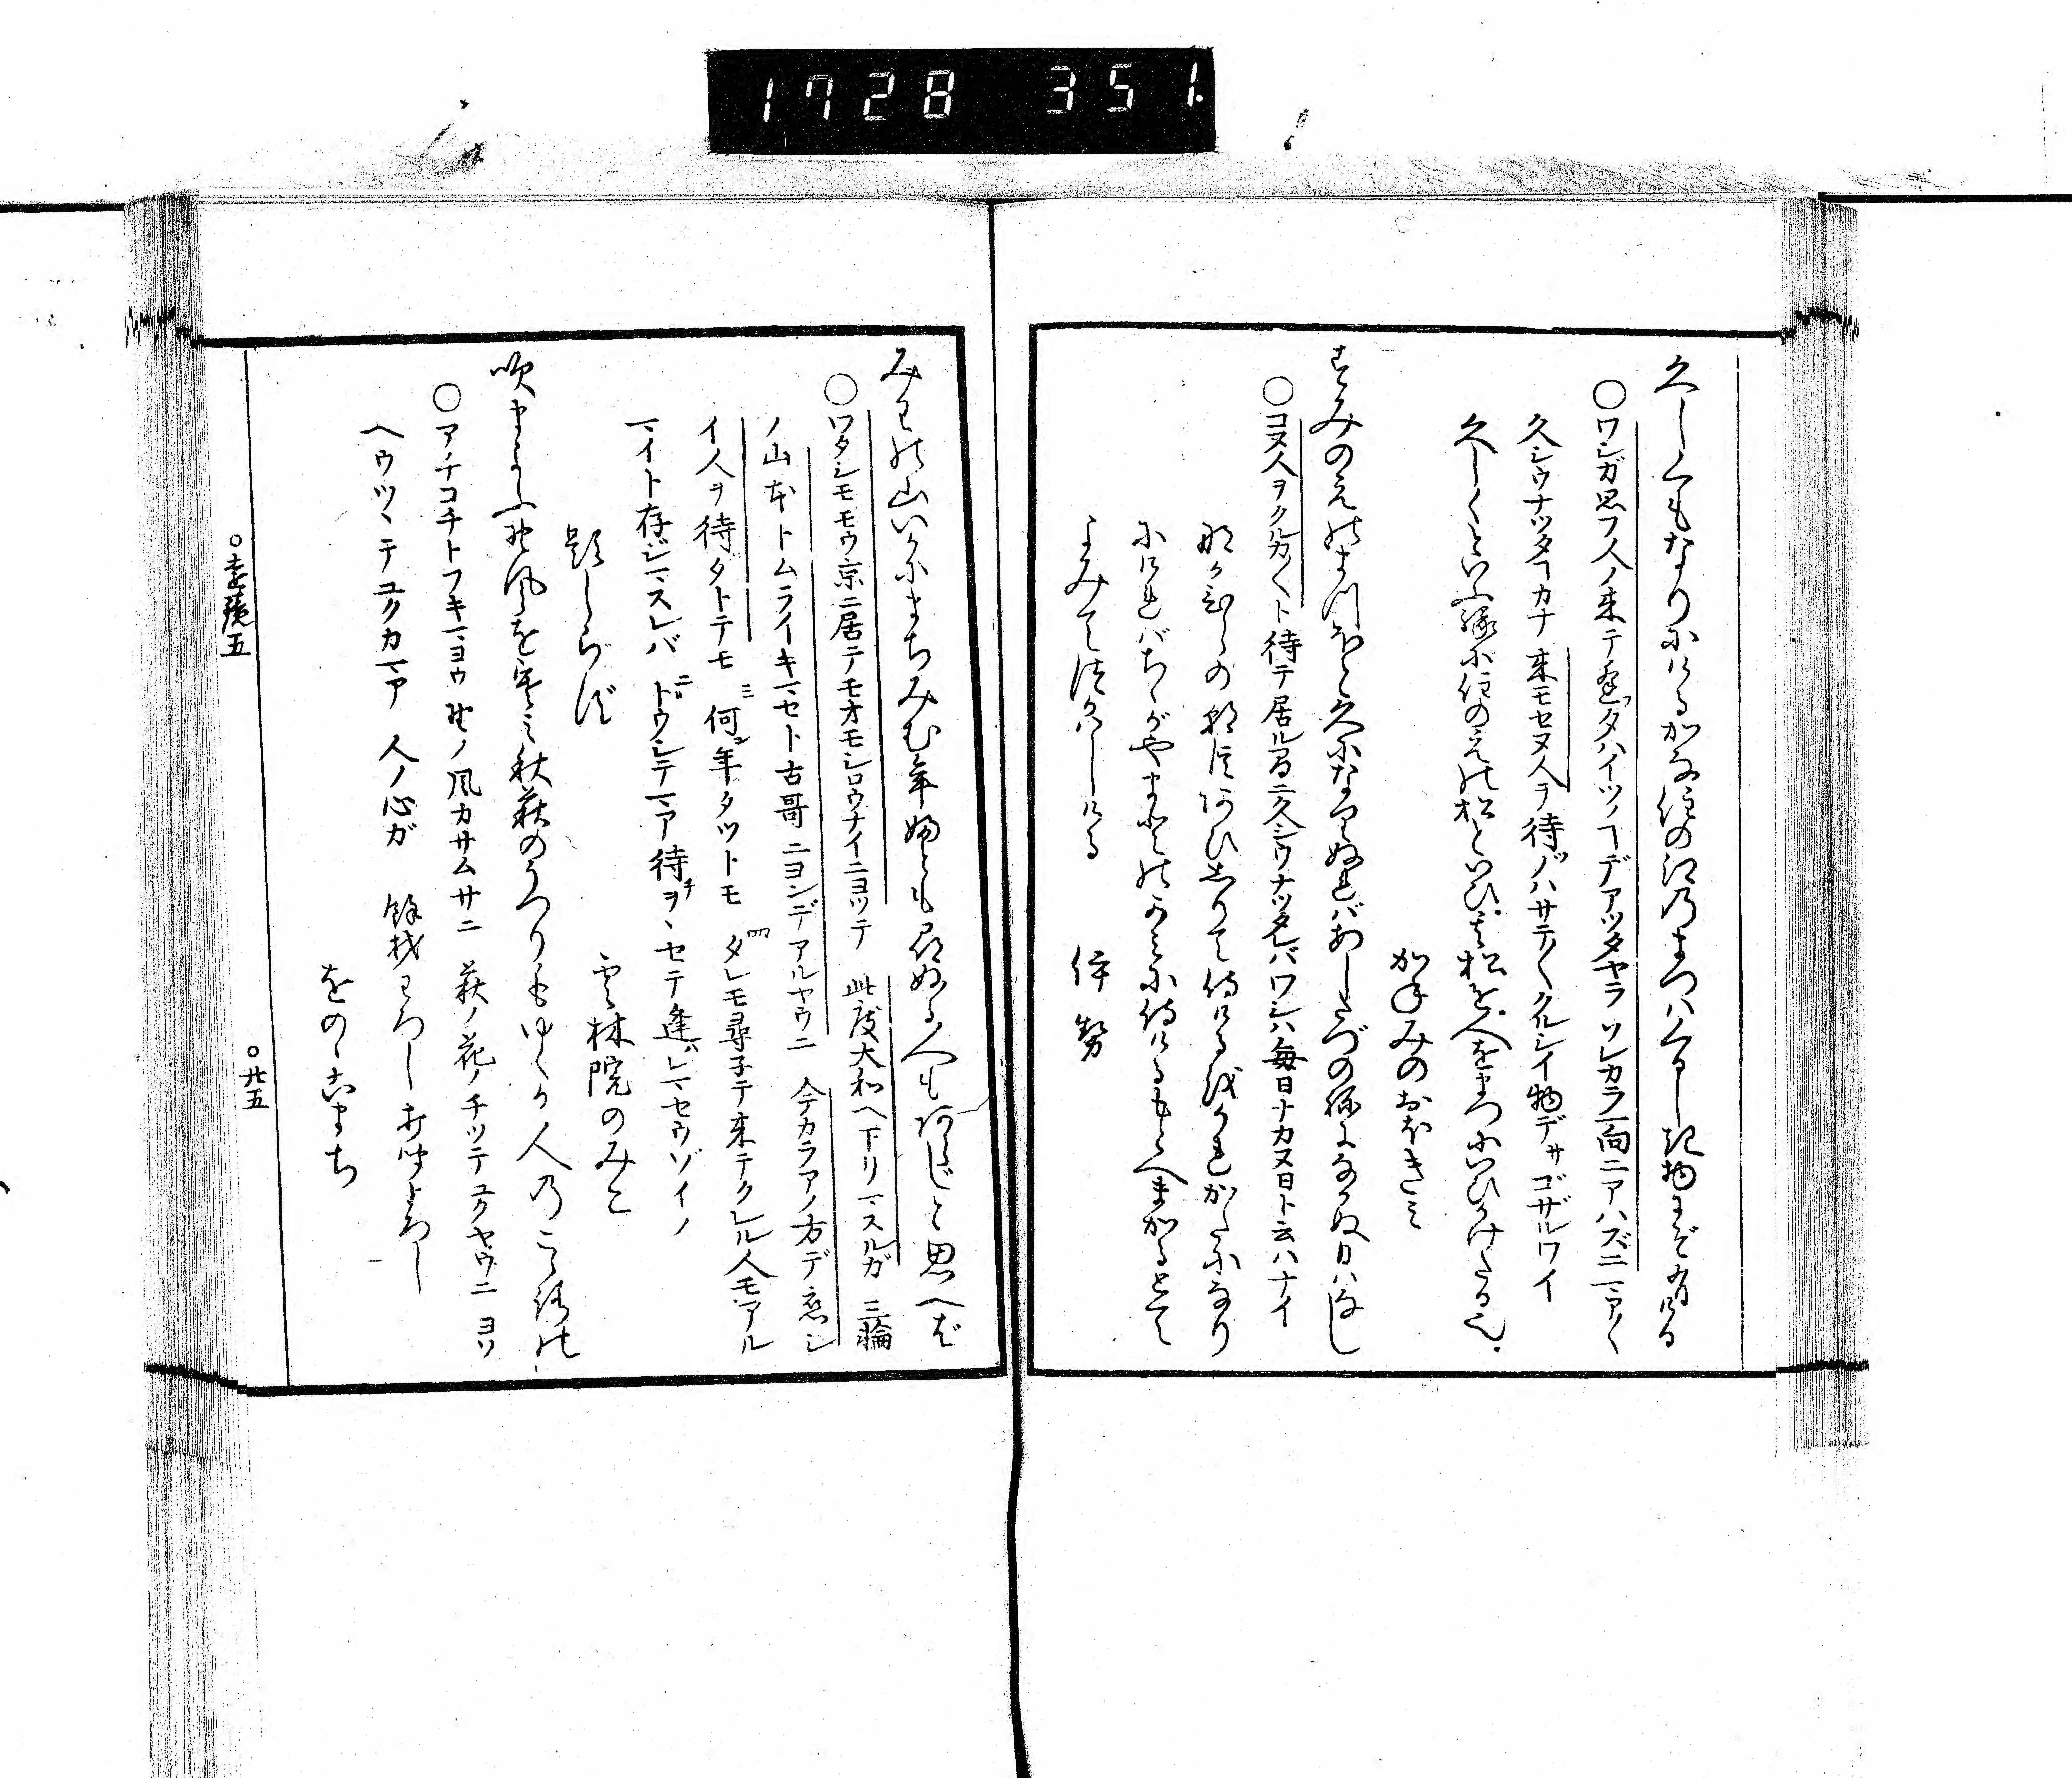 1728 351.
久しくもなりにけるかな住の江のまつはくるしき物にぞ有ける
○ワシガ思フ人ノ来テ逢ッタハイツノヿデアツタヤラ ソレカラ一向ニアハズニマア〱
久シウナツタヿカナ 来モセヌ人ヲ待ノハサテ〱クルシイ物デサゴザルワイ
久しくといふ縁に住のえの松といひ、其松を、人をまつにいひかけたる也、
かねみのおほきみ
すみのえのまつほど久になりぬればあしたづの音になかぬ日はなし
○コヌ人ヲクルカ〱ト待テ居ル間ニ久シウナツタレバワシハ毎日ナカヌ日ト云ハナイ
なかひらの朝臣あひしりて侍けるをかれがたになり
にければちゝがやまとのかみに侍けるもとへまかるとて
よみてつかはしける 伊勢
みわの山いかにまちみむ年ふとも尋ぬる人もあらじと思へば
○ワタシモモウ京ニ居テモオモシロウナイニヨツテ 此度大和ヘ下リマスルガ 三輪
ノ山本トムライキマセト古哥ニヨンデアルヤウニ 今カラアノ方デ恋シ
イ人ヲ待タトテモ 三何年タツトモ 四タレモ尋子テ来テクレル人モアル
マイト存ジマスレバ 二ドウシテマア待チヲヽセテ逢ハレマセウゾイノ
題しらず
雲林院のみこ
吹まよふ野風を寒み秋萩のうつりもゆくか人のこゝろの
○アチコチトフキマヨウ野ノ風カサムサニ 萩ノ花ノチツテユクヤウニ ヨソ
ヘウツヽテユクカマア 人ノ心ガ 餘材わろし打聞よろし
をのゝこまち
○遠鏡五 ○廿五